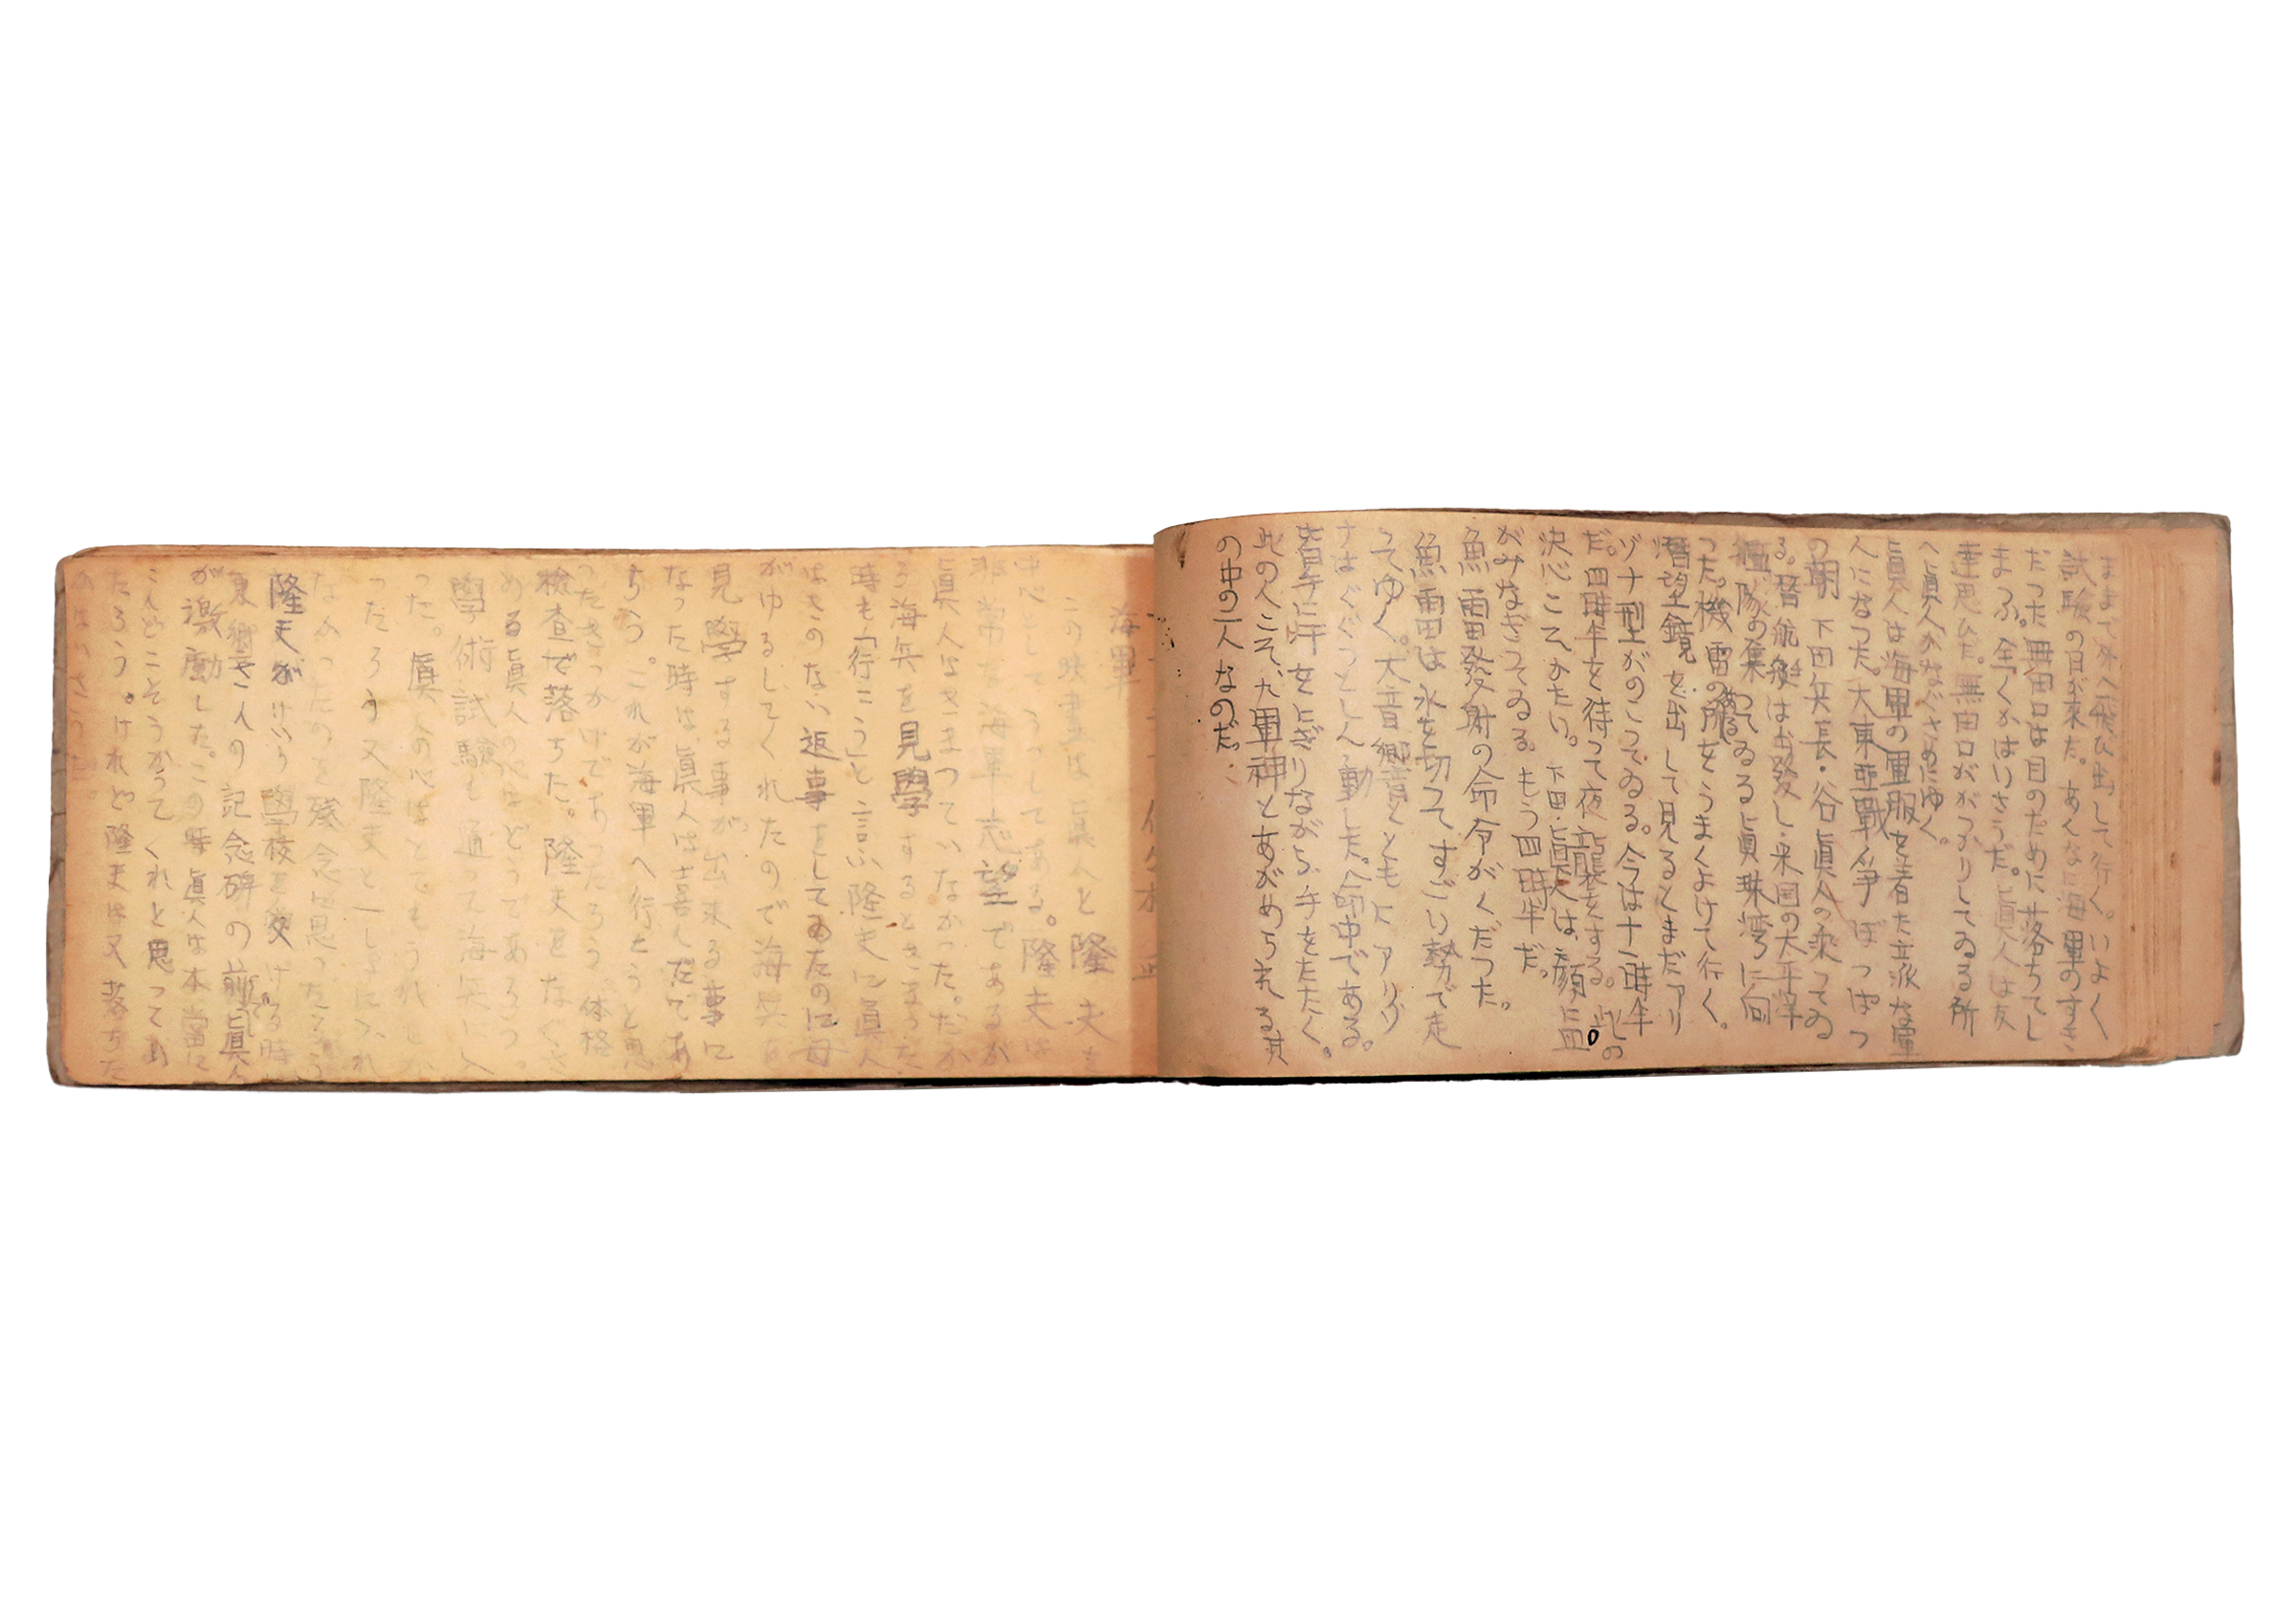 ままで外へ飛び出して行く。いよく
試験の日が来た。あんなに海軍のすき
だった無田口は目のために落ちてし
まふ。全くかはいさうだ。眞人は友
達思ひだ。無田口ががっかりしてゐる所
へ眞人がなぐさめにゆく。
眞人は海軍の軍服を着た立派な軍
人になつた。大東亜戰争ぼつぱつ
の朝 下田兵長・谷眞人の乘つてゐ
る。潜航艇は出発し米国の太平洋
艦隊の集つてゐる眞珠湾に向
つた。機雷のある所をうまくよけて行く。
潜望鏡を出して見るとまだアリ
ゾナ型がのこつてゐる。今は十一時半
だ。四時半を待って夜襲をする。此の
決心こそかたい。下田・眞人は、顔に血
がみなぎつてゐる。もう四時半だ。
魚雷發射の命令がくだった。
魚雷は水を切って、すごい勢で走
つてゆく。大音響とともにアリゾ
ナはぐぐっとしん動した。命中である。
皆手に汗をにぎりながら手をたたく。
此の人こそ、九軍神とあがめられる其
の中の一人なのだ。
海軍
この映畫は眞人と隆夫を
中心としてうつしてある。隆夫は
非常な海軍志望であるが
眞人はきまつていなかった。だか
ら海兵を見學するときまった
時も「行こう」と言ふ隆夫に眞人
はきのない返事をしてゐたのに母
がゆるしてくれたので海兵を
見學する事が出来る事に
なった時は、眞人は喜んだであ
らう。これが海軍へ行こうと思
ったきっかけであったろう。体格
検査で落ちた。隆夫をなぐさ
める眞人の心はどうであろう。
學術試驗も通って海兵に入
った。眞人の心はとてもうれしか
っだろう又隆夫と一しょにふれ
なかったのを殘念に思ったろう
隆夫がけいう學校を受ける時
東郷さんの記念碑の前で眞人
が激勵した。この時眞人は本当に
こんどこそうかってくれと思ってあ
たろう。けれど隆夫は又落ちた